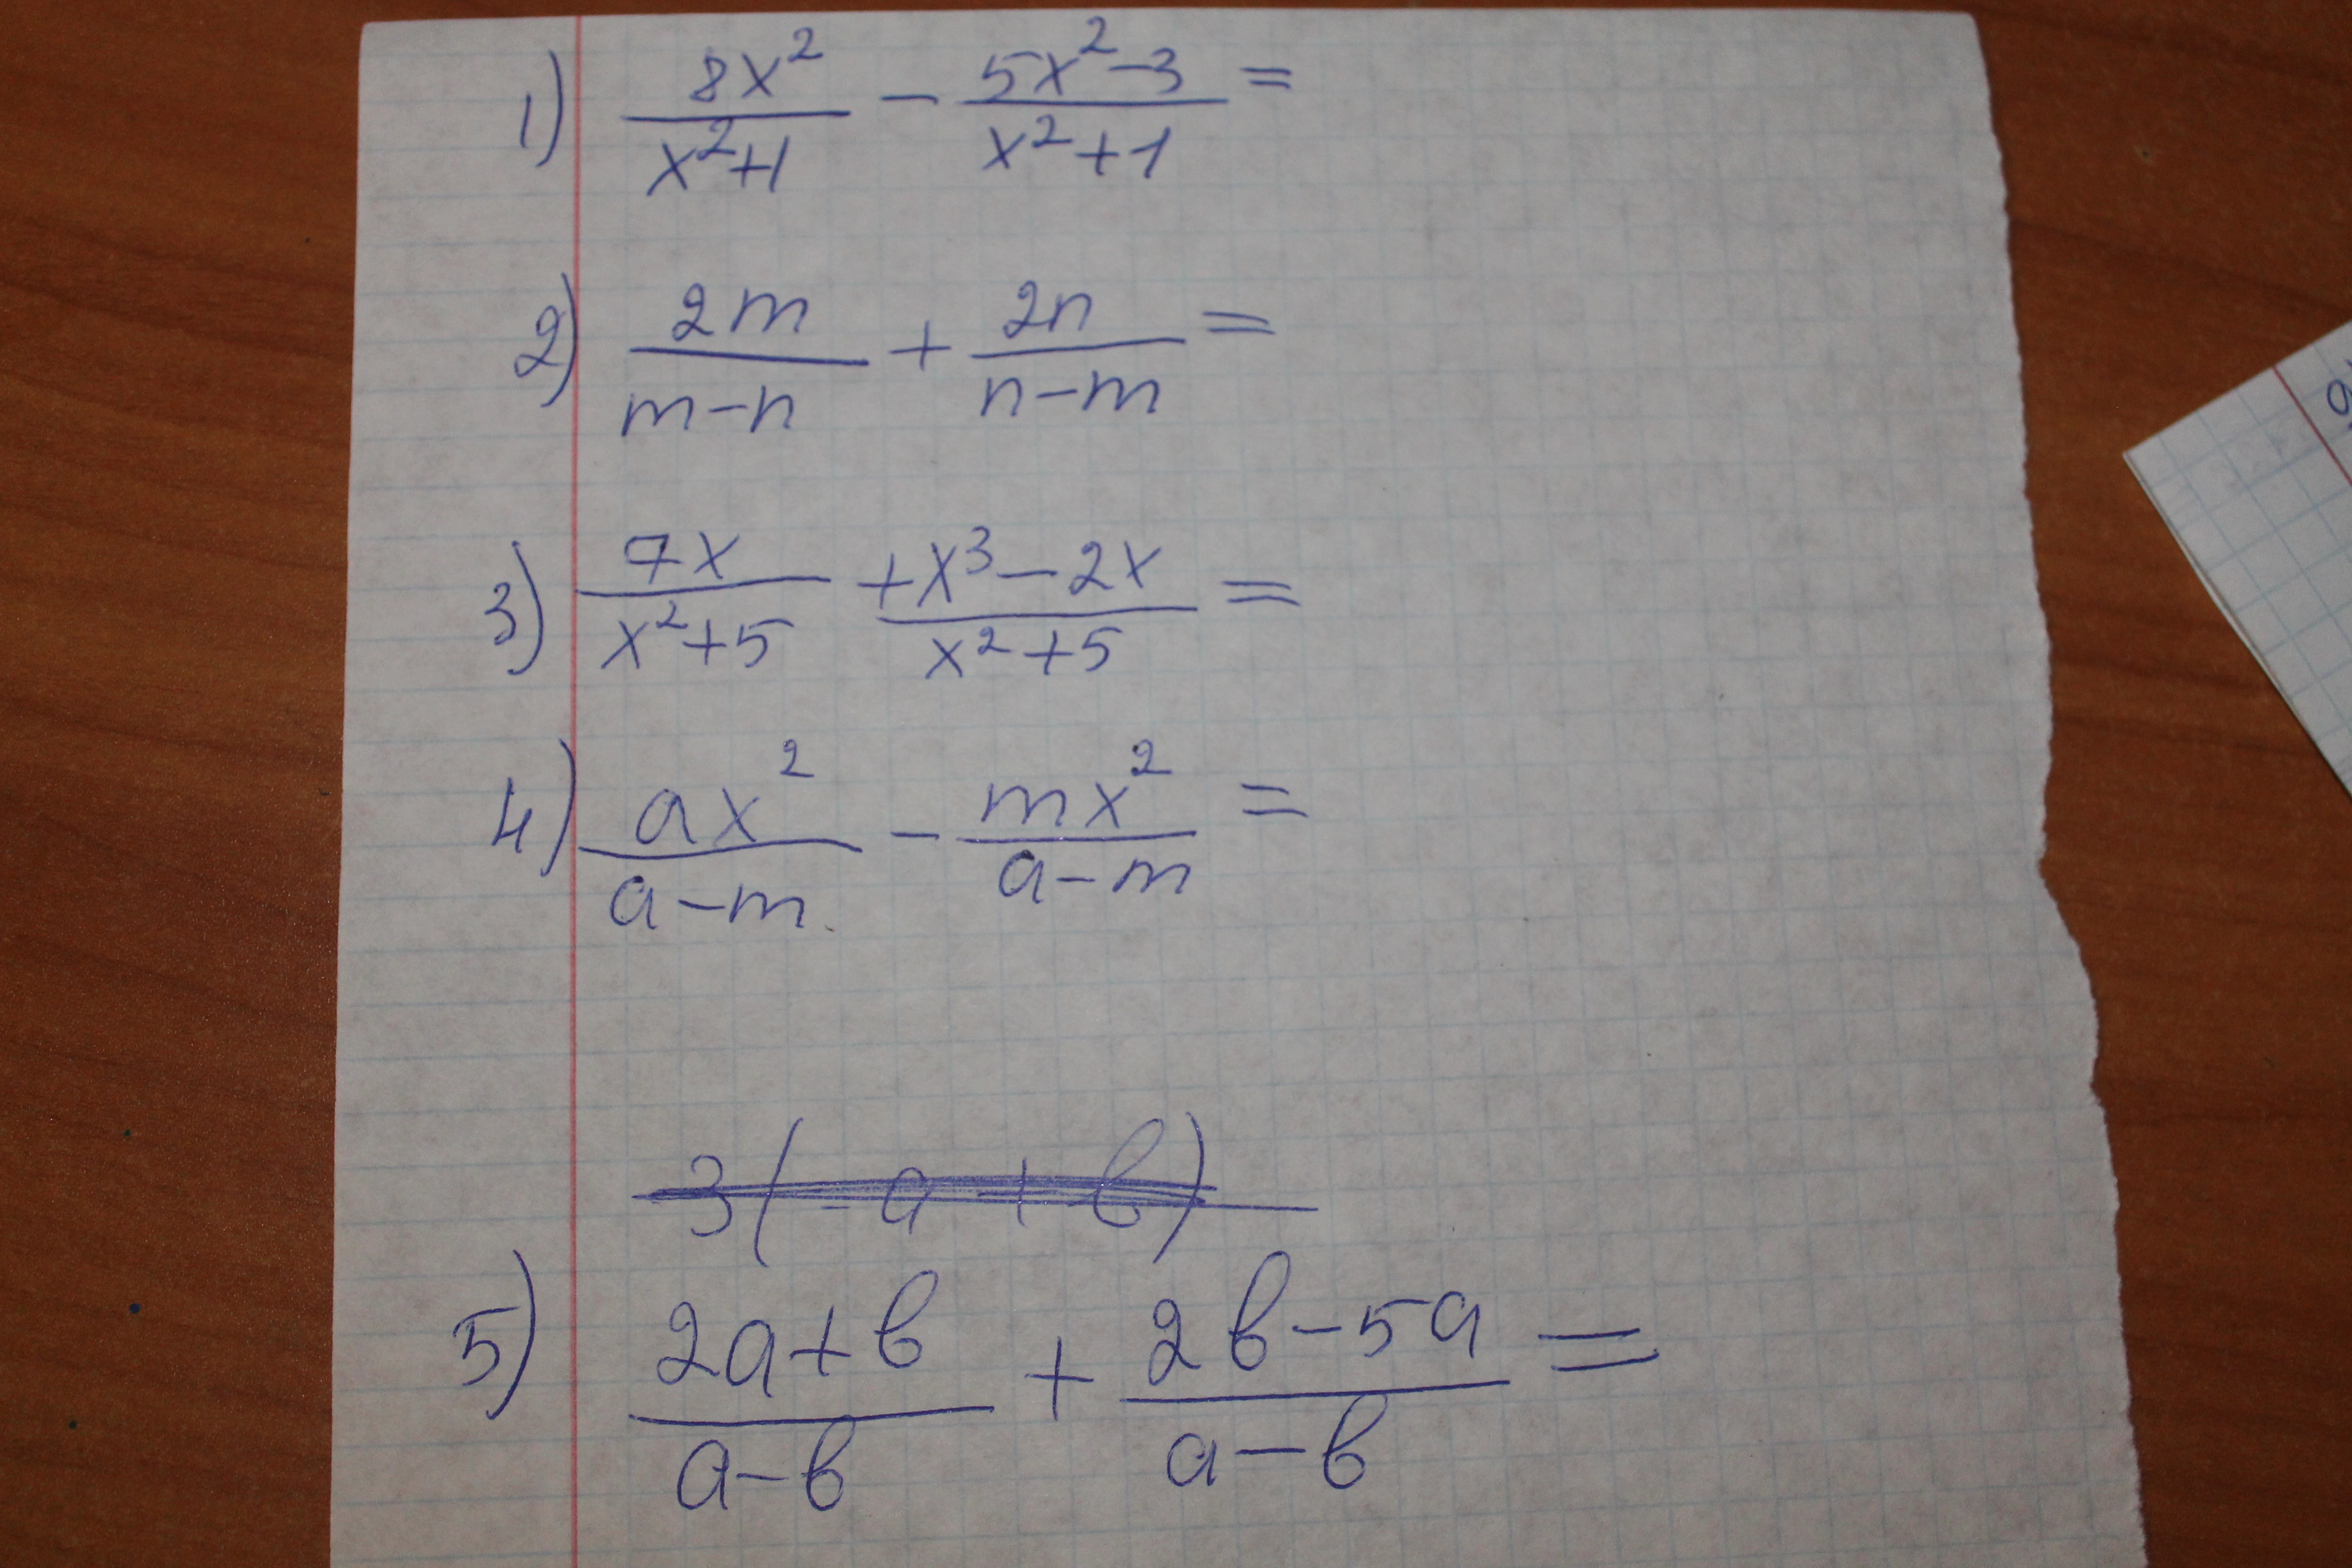 1) 8x²/(x²+1) - (5x²-3)/(x²+1) =
2) 2m/(m-n) + 2n/(n-m) =
3) 7x/(x²+5) + (x³-2x)/(x²+5) =
4) ax²/(a-m) - mx²/(a-m) =
3(-a+b)
5) (2a+b)/(a-b) + (2b-5a)/(a-b) =